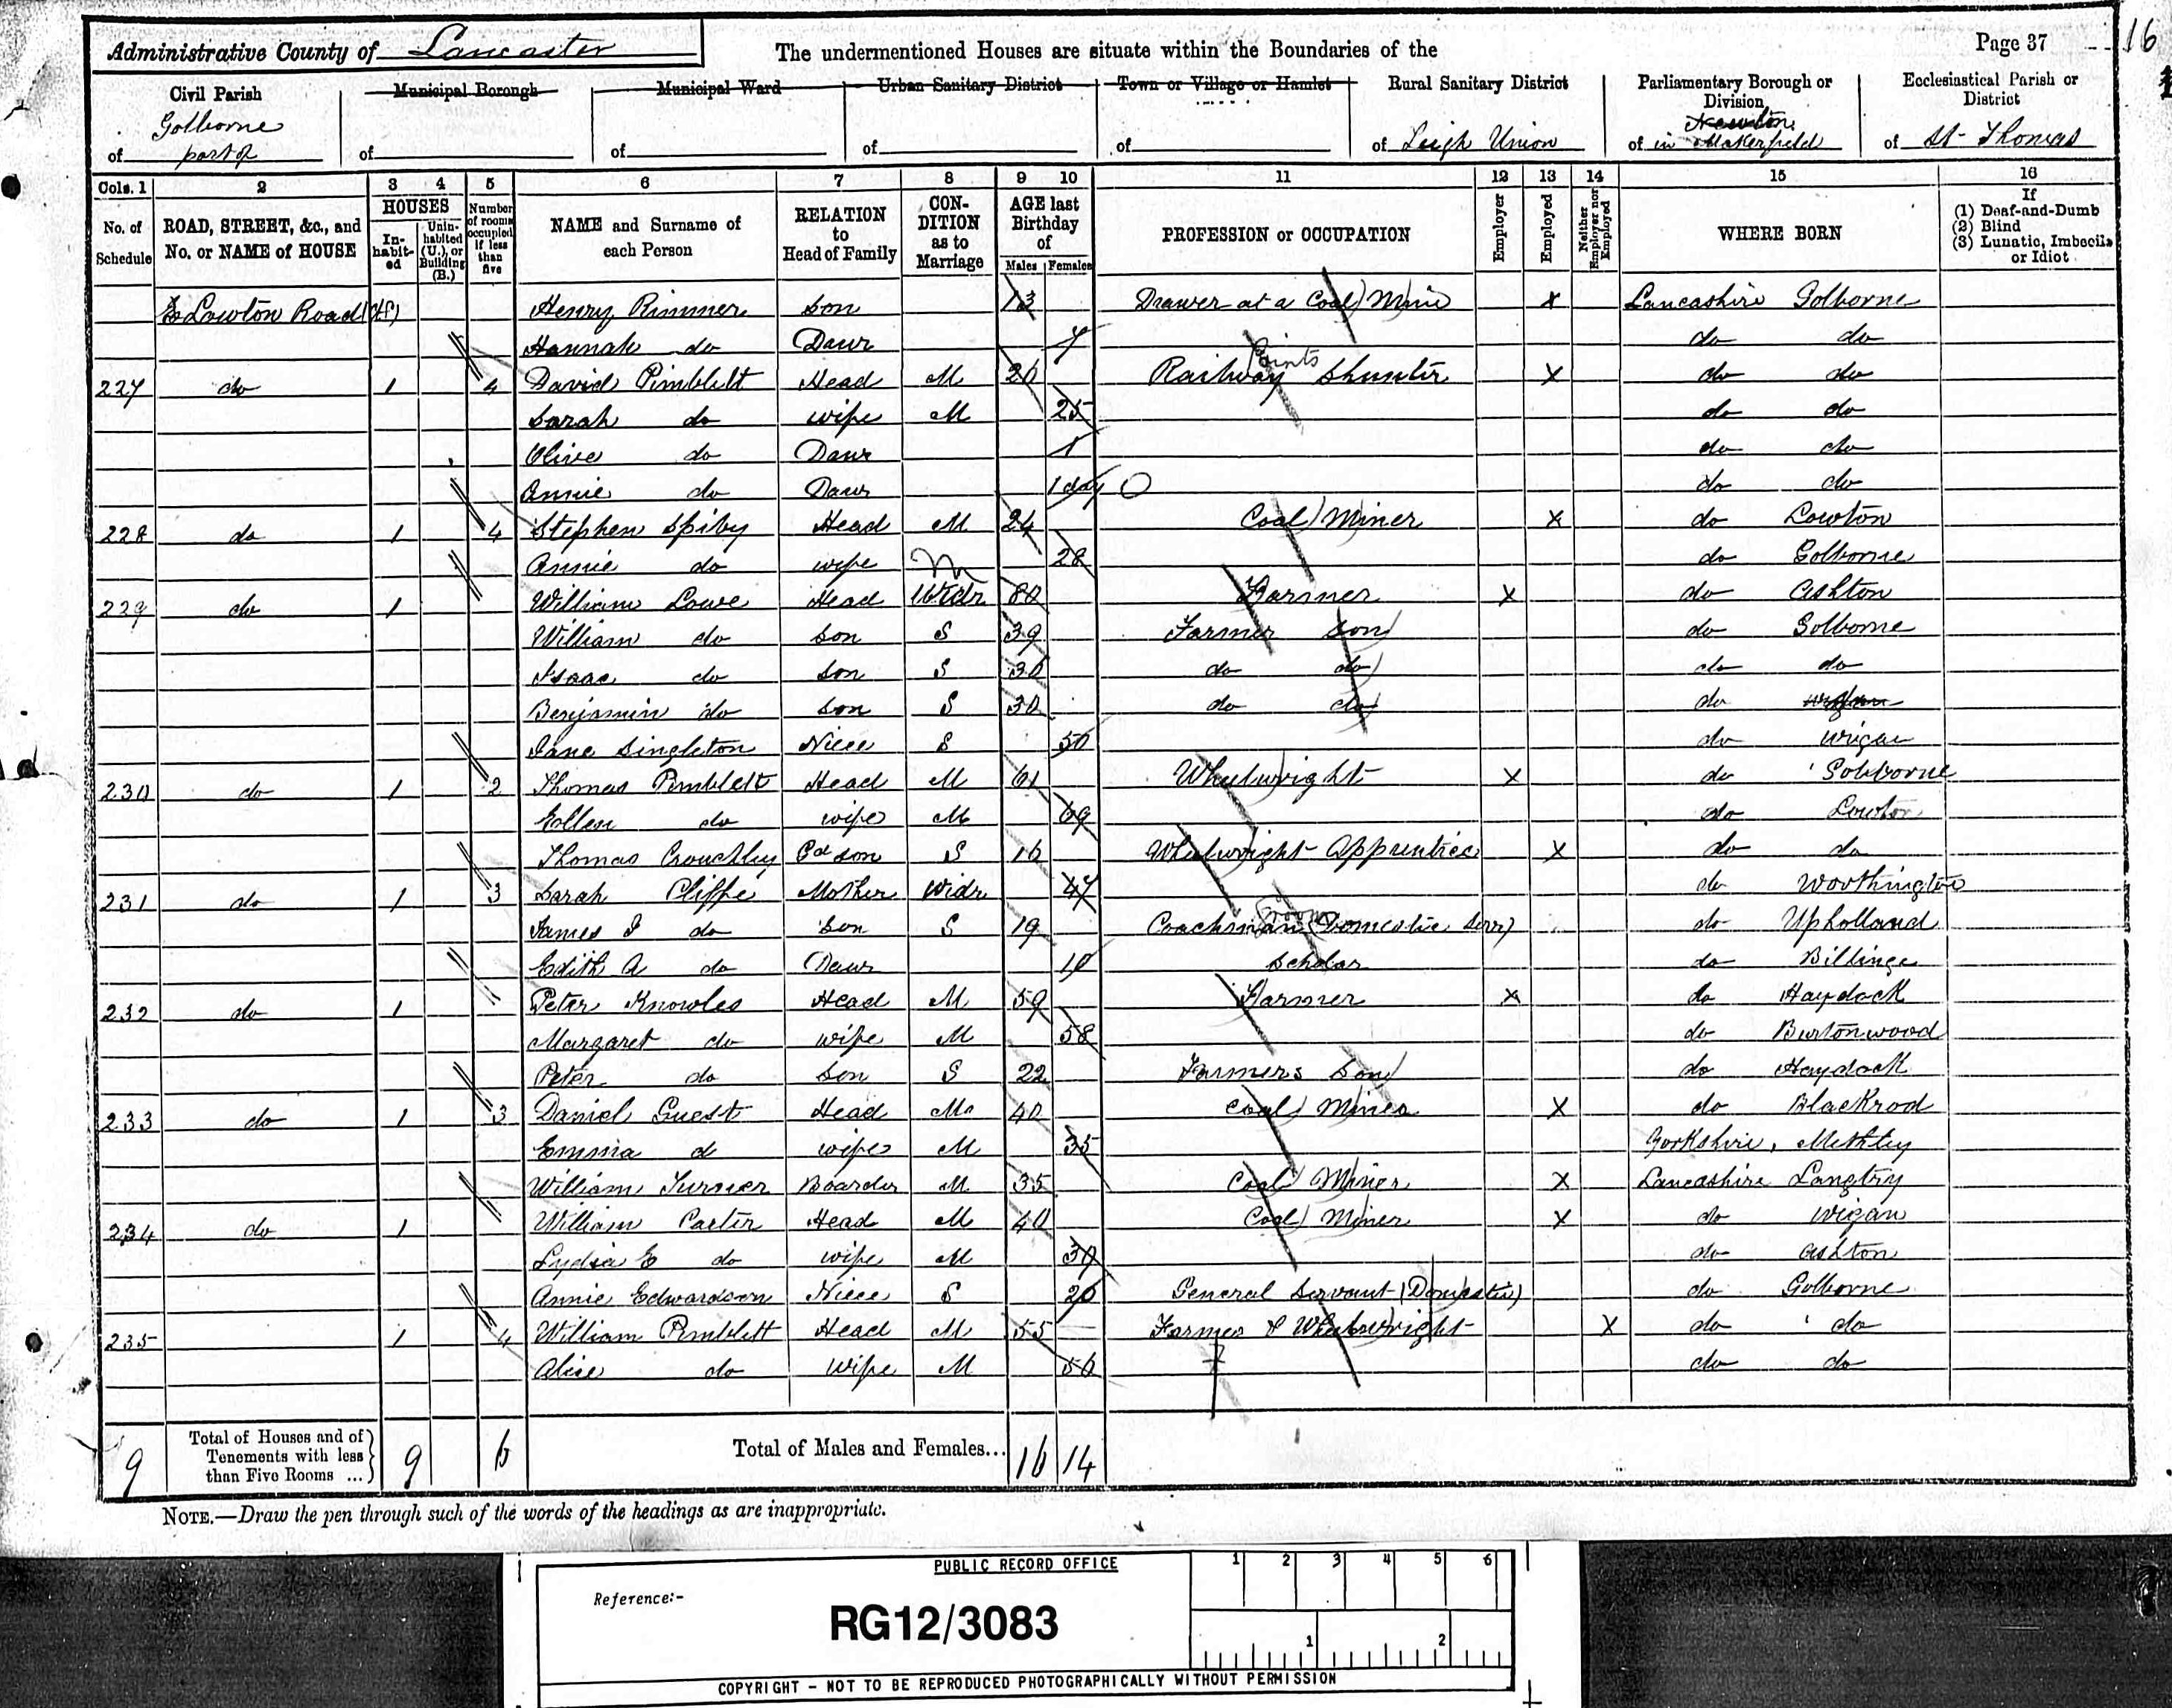 Administrative County of Lancaster
The undermentioned Houses are situate within the Boundaries of the
Page 37
16
Civil Parish
Municipal Borough
Municipal Ward
Urban Sanitary District
Town or Village or Hamlet
Rural Sanitary District
Parliamentary Borough or Division
Ecclesiastical Parish or District
of Golborne part of
of
of
of
of
of Leigh Union
of Newton in Makerfield
of St Thomas
Cols. 1 2 3 4 5 6 7 8 9 10 11 12 13 14 15 16
No. of Schedule
ROAD, STREET, &c., and No. or NAME of HOUSE
HOUSES
In-habit-ed
Unin-habited (U.), or Building (B.)
Number of rooms occupied if less than five
NAME and Surname of each Person
RELATION to Head of Family
CON-DITION as to Marriage
AGE last Birthday of
Males Females
PROFESSION or OCCUPATION
Employer
Employed
Neither Employer nor Employed
WHERE BORN
If
(1) Deaf-and-Dumb
(2) Blind
(3) Lunatic, Imbecile or Idiot
Lowton Road Henry Rimmer Son 13 Drawer at a Coal Mine X Lancashire Golborne
Hannah do Daur 7 do do
227 do 1 4 David Pimblett Head M 26 Railway Points Shunter X do do
Sarah do wife M 25 do do
Olive do Daur 1 do do
Annie do Daur 1 day do do
228 do 1 4 Stephen Spiby Head M 24 Coal Miner X do Lowton
Annie do wife M 28 do Golborne
229 do 1 William Lowe Head Widr 80 Farmer X do Ashton
William do Son S 39 Farmer Son do Golborne
Isaac do Son S 30 do do do do
Benjamin do Son S 30 do do do
Jane Singleton Niece S 50 do Wigan
230 do 1 2 Thomas Pimblett Head M 61 Wheelwright X do Golborne
Ellen do wife M 69 do Lowton
Thomas Crouchley Gd son S 16 Wheelwright Apprentice X do do
231 do 1 3 Sarah Cliffe Mother Widr 47 do Worthington
James J do Son S 19 Coachman Groom (Domestic Serv) do Upholland
Edith A do Daur 10 Scholar do Billinge
232 do 1 Peter Knowles Head M 59 Farmer X do Haydock
Margaret do wife M 58 do Burtonwood
Peter do Son S 22 Farmers Son do Haydock
233 do 1 3 Daniel Guest Head M 40 Coal Miner X do Blackrod
Emma d wife M 35 Yorkshire, Methley
William Turner Boarder M 35 Coal Miner X Lancashire Langtry
234 do 1 William Carter Head M 40 Coal Miner X do Wigan
Lydia E do wife M do Ashton
Annie Edwardson Niece S 20 General Servant (Domestic) do Golborne
235 1 4 William Pimblett Head M 55 Farmer & Wheelwright X do do
Alice do wife M 56 do do
9 Total of Houses and of Tenements with less than Five Rooms ... 9 6 Total of Males and Females... 16 14
NOTE.—Draw the pen through such of the words of the headings as are inappropriate.
PUBLIC RECORD OFFICE
1 2 3 4 5 6
Reference:-
RG12/3083
1 2
COPYRIGHT - NOT TO BE REPRODUCED PHOTOGRAPHICALLY WITHOUT PERMISSION